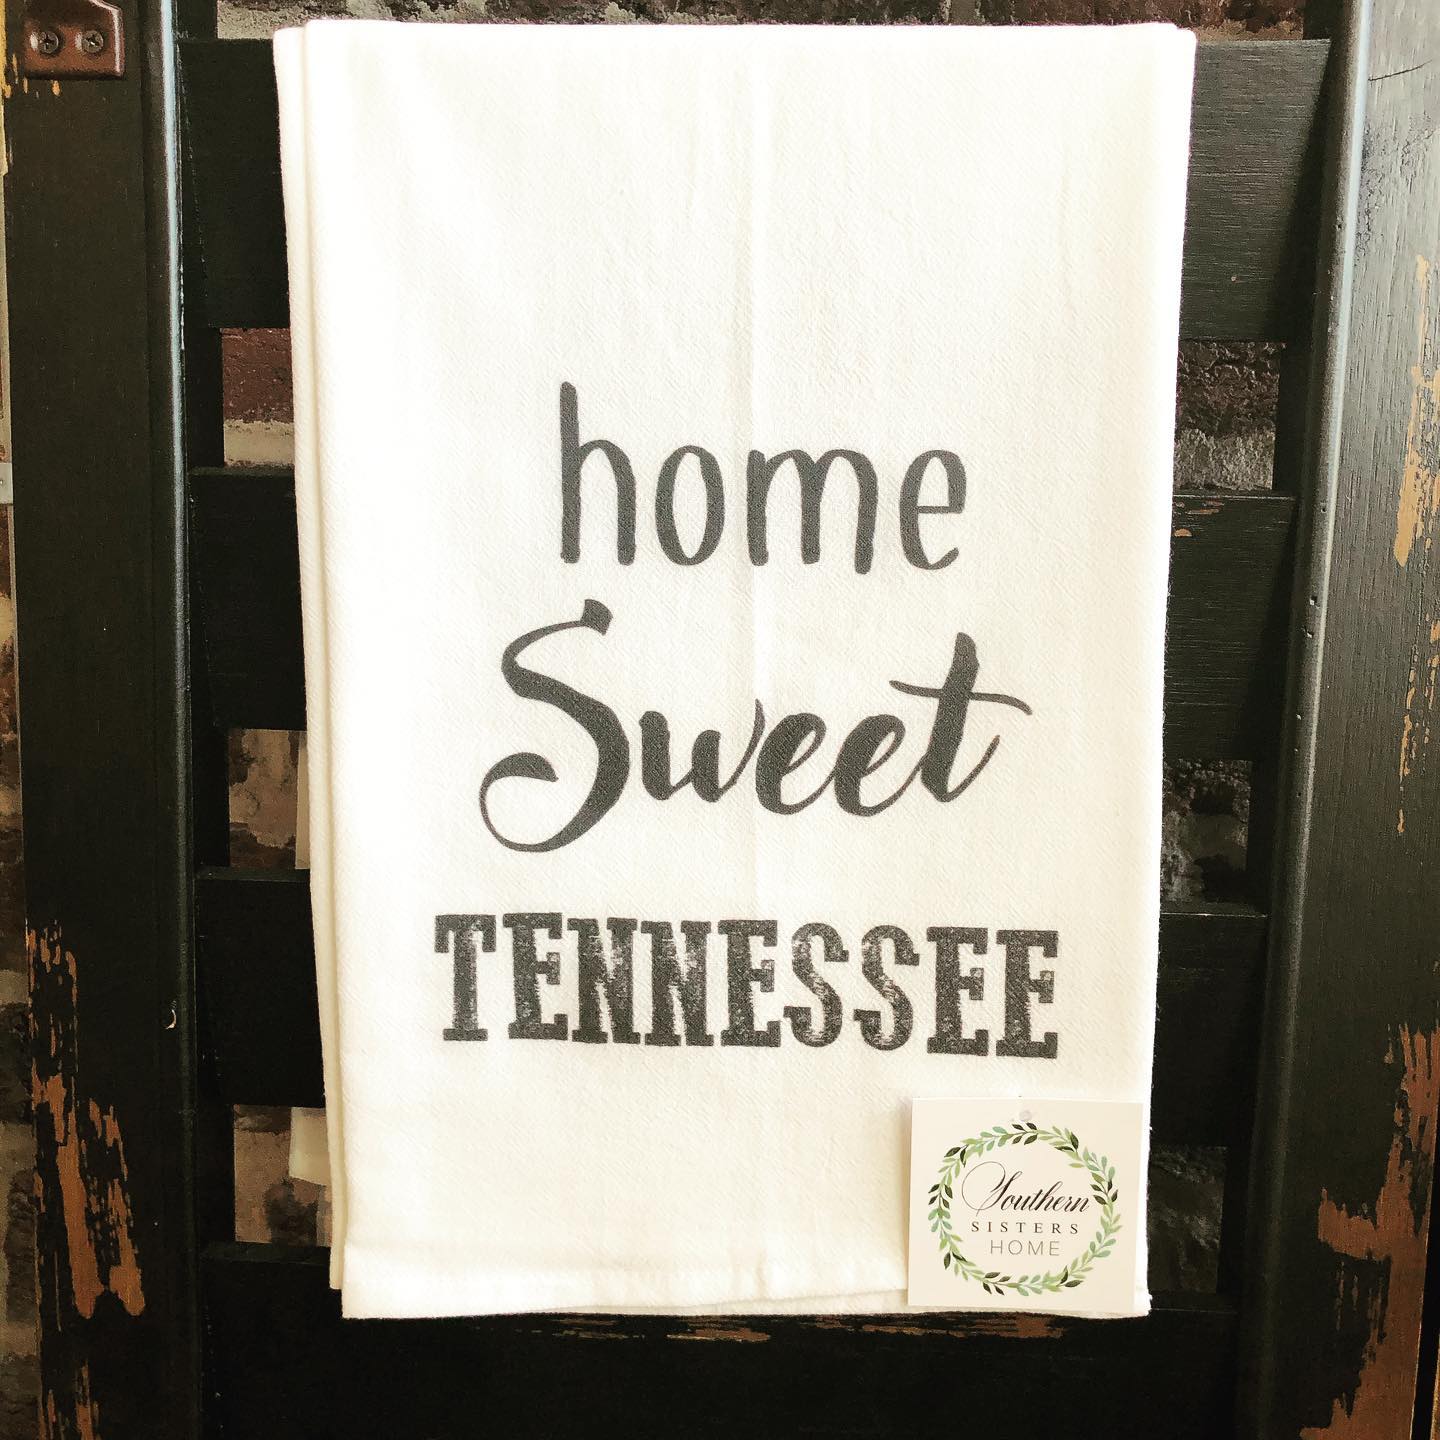 home
Sweet
TENNESSEE
Southern
SISTERS
HOME